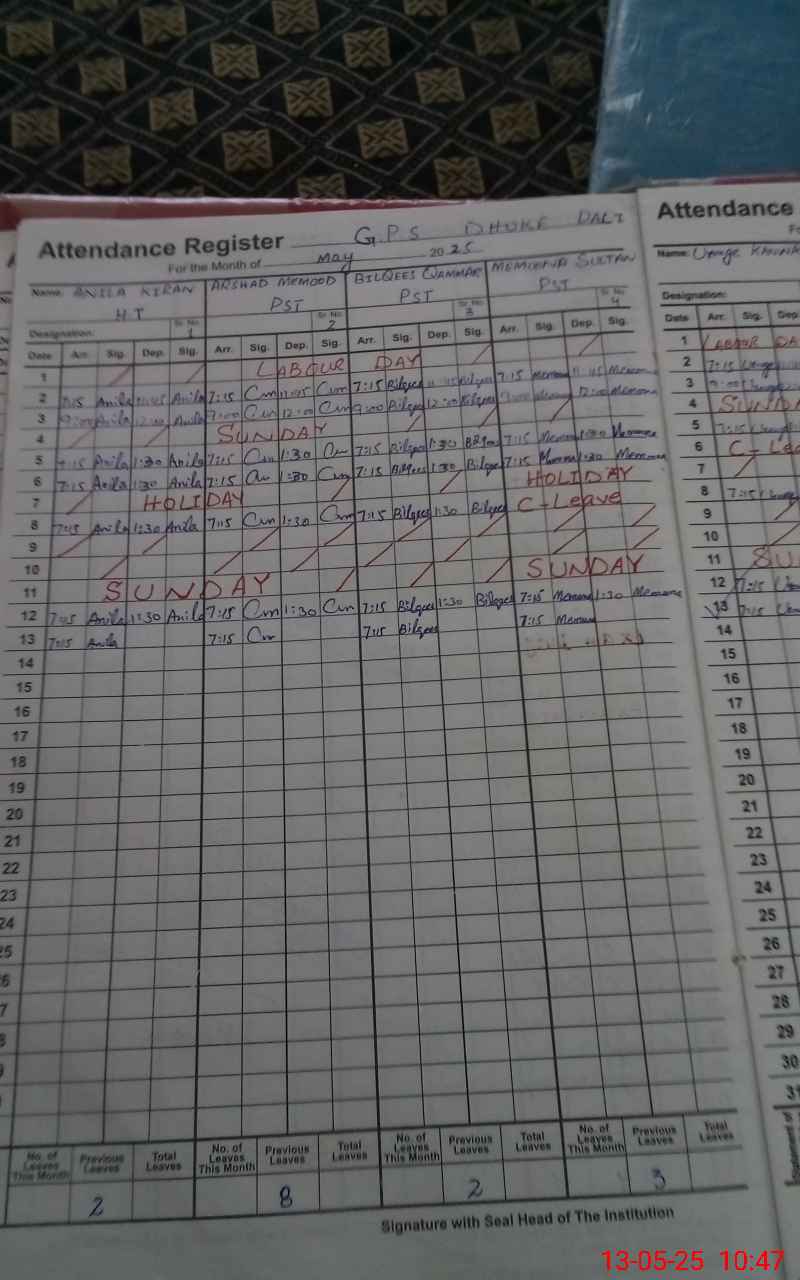 Attendance Register G.P.S DHOKE DALI
For the Month of May 2025
Name: ANILA KIRAN ARSHAD MEMOOD BILQEES QAMMAR MEMOONA SULTAN
H.T PST PST PST
Designation: Sr. No. 1 Sr. No. 2 Sr. No. 3 Sr. No. 4
Date Arr. Sig. Dep. Sig. Arr. Sig. Dep. Sig. Arr. Sig. Dep. Sig. Arr. Sig. Dep. Sig.
1 LABOUR DAY
2 7:15 Anila 11:45 Anila 7:15 Cm 11:45 Cm 7:15 Bilqees 11:45 Bilqees 7:15 Memona 11:45 Memona
3 9:00 Anila 12:00 Anila 9:00 Cm 12:00 Cm 9:00 Bilqees 12:00 Bilqees 9:00 Memona 12:00 Memona
4 SUNDAY
5 7:15 Anila 1:30 Anila 7:15 Cm 1:30 Cm 7:15 Bilqees 1:30 Bilqees 7:15 Memona 1:30 Memona
6 7:15 Anila 1:30 Anila 7:15 Cm 1:30 Cm 7:15 Bilqees 1:30 Bilqees 7:15 Memona 1:30 Memona
7 HOLIDAY HOLIDAY
8 7:15 Anila 1:30 Anila 7:15 Cm 1:30 Cm 7:15 Bilqees 1:30 Bilqees C-Leave
9
10
11 SUNDAY SUNDAY
12 7:15 Anila 1:30 Anila 7:15 Cm 1:30 Cm 7:15 Bilqees 1:30 Bilqees 7:15 Memona 1:30 Memona
13 7:15 Anila 7:15 Cm 7:15 Bilqees 7:15 Memona
14
15
16
17
18
19
20
21
22
23
24
25
6
7
No. of Leaves This Month Previous Leaves Total Leaves No. of Leaves This Month Previous Leaves Total Leaves No. of Leaves This Month Previous Leaves Total Leaves No. of Leaves This Month Previous Leaves Total Leaves
2 8 2 3
Signature with Seal Head of The Institution
Attendance
Name:
Designation:
Date Arr. Sig. Dep
1 LABOUR DA
2 7:15
3 9:00
4 SUNDA
5 7:15
6 C-Lea
7
8 7:15
9
10
11 SU
12 7:15
13 7:15
14
15
16
17
18
19
20
21
22
23
24
25
26
27
28
29
30
31
13-05-25 10:47